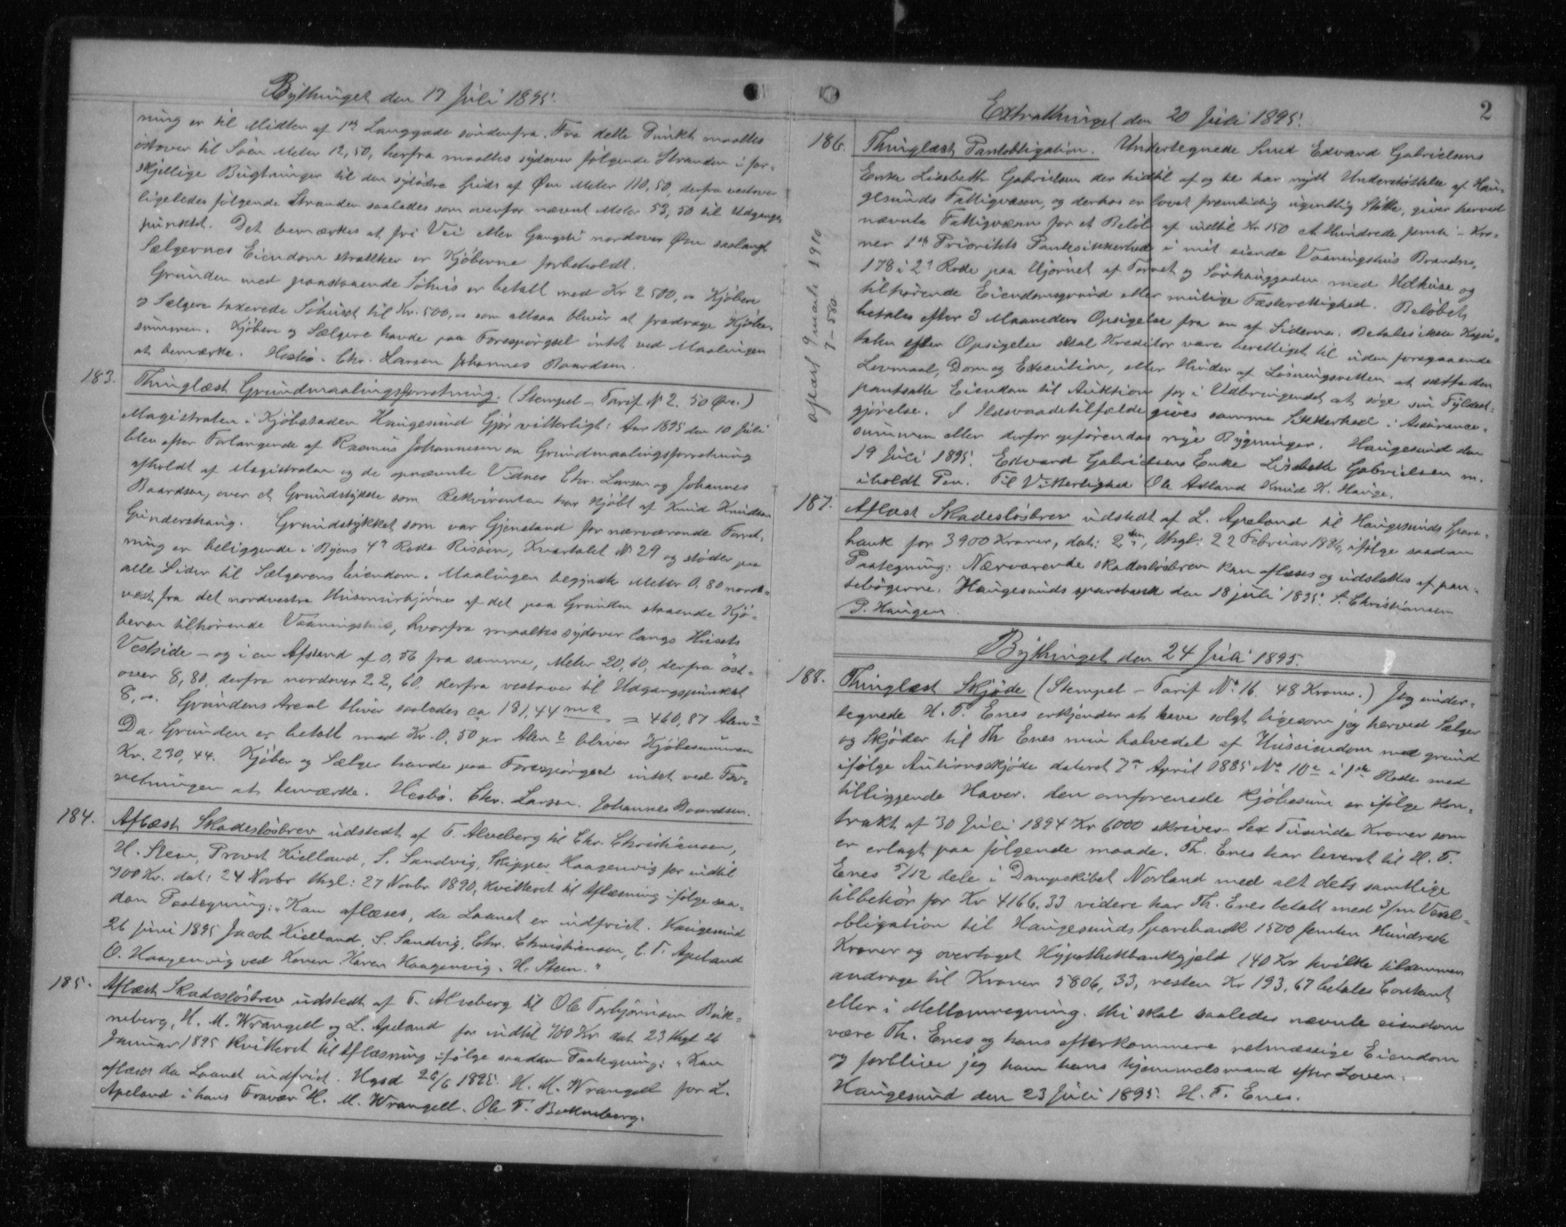 Bythinget den 17 Juli 1895.
ning er til Midten af 1ste Langgade søndenfra. Fra dette Punkt maaltes
østover til Søen Meter 12,50, herfra maaltes sydover følgende Stranden i for-
skjellige Bugtninger til den sydøstre Grids af Øen Meter 110,50, derfra vestover
ligeledes følgende Stranden saaledes som ovenfor nævnt Meter 53,50 til Udgangs
punktet. Det bemærkes at fri Vei eller Gangsti nordover Øen saalangt
Sælgernes Eiendom strækker er Kjøberne forbeholdt.
Grunden med paastaaende Søhus er betalt med Kr 2500,00 Kjøbere
og Sælgere taxerede Søhuset til Kr. 500,00 som altsaa bliver at fradrage Kjøbe-
summen. Kjøber og Sælgere havde paa Forespørgsel intet ved Maalingen
at bemærke. Hesbø. Chr. Larsen Johannes Baardsen.
183. Thinglæst Grundmaalingsforretning. (Stempel – Tarif № 2. 50 Øre.)
Magistraten i Kjøbstaden Haugesund Gjør vitterligt: Aar 1895 den 10 Juli
blev efter Forlangende af Rasmus Johannesen en Grundmaalingsforretning
afholdt af Magistraten og de opnævnte Vidner Chr. Larsen og Johannes
Baardsen, over et Grundstykke som Rekvirenten har kjøbt af Knud Knudsen
Gundershaug. Grundstykket som var Gjenstand for nærværende Forret-
ning er beliggende i Byens 4de Rode Risøen, Kvartalet № 29 og støder paa
alle Sider til Sælgerens Eiendom. Maalingen begyndte Meter 0,80 nord-
vest fra det nordvestre Husmurhjørne af det paa Grunden staaende Kjø-
beren tilhørende Vaaningshus, hvorfra maaltes sydover langs Husets
Vestside – og i en Afstand af 0,56 fra samme, Meter 20,60, derfra øst-
over 8,80, derfra nordover 22,60, derfra vestover til Udgangspunktet
8,00. Grundens Areal bliver saaledes ca 181,44 m2 = 460,87 Alen2
Da Grunden er betalt med Kr. 0,50 pr Alen2 bliver Kjøbesummen
Kr. 230,44. Kjøber og Sælger havde paa Forespørgsel intet ved For-
retningen at bemærke. Hesbø. Chr. Larsen. Johannes Baardsen.
184. Aflæst Skadesløsbrev udstedt af T. Alveberg til Chr. Christiansen,
H. Steen, Provst Kielland, S. Sandvig, Skipper Haagenvig for indtil
700 Kr. dat: 24 Novbr thgl: 27 Novbr 1890, kvitteret til Aflæsning ifølge saa-
dan Paategning: "Kan aflæses, da Laanet er indfriet. Haugesund
26 Juni 1895 Jacob Kielland, S. Sandvig, Chr. Christiansen, C. T. Apeland
O. Haagenvig ved Konen Karen Haagenvig. H. Steen."
185. Aflæst Skadesløsbrev udstedt af T. Alveberg til Ole Torbjørnsen Buk-
neberg, H. M. Wrangell og L. Apeland for indtil 700 Kr. dat 23 thgl 26
Januar 1895 kvitteret til Aflæsning ifølge saadan Paategning: "Kan
aflæses da Laanet indfriet. Hgsd 26/6 1895. H. M. Wrangell for L.
Apeland i hans Fravær H. M. Wrangell. Ole T. Bukneberg.
Extrathinget den 20 Juli 1895.
2
186. Thinglæst Pantobligation. Undertegnede Smed Edvard Gabrielsens
Enke Lisebeth Gabrielsen der hidtil af og til har nydt Understøttelse af Hau-
gesunds Fattigvæsen, og derhos er lovet fremtidig ugentlig Støtte, giver herved
nævnte Fattigvæsen for et Beløb af indtil Kr 150 et Hundrede femti – Kro-
ner 1ste Prioritets Pantesikkerhed i mit eiende Vaaningshus Brandno.
178 i 2den Rode paa Hjørnet af Torvet og Sørhauggaden med Uthuse og
tilhørende Eiendomsgrund eller mulige Fæsterettighed. Beløbet
betales efter 3 Maaneders Opsigelse fra en af Siderne. Betales ikke Kapi-
talen efter Opsigelse skal Kreditor være berettiget til uden foregaaende
Lovmaal, Dom og Execution, eller Hinder af Løsningsretten at sætte den
pantsatte Eiendom til Auktion for i Udbringendet at søge sin Fyldest-
gjørelse. I Ildsvaadetilfælde gives samme Sikkerhed i Assurance-
summen eller derfor opførendes nye Bygninger. Haugesund den
19 Juli 1895. Edvard Gabrielsens Enke Lisebeth Gabrielsen m.
iholdt Pen. Til Vitterlighed Ole Aadland Knud K. Hauge.
aflæst 9 marts 1910
7-580
187. Aflæst Skadesløsbrev udstedt af L. Apeland til Haugesunds Spare-
bank for 3900 Kroner, dat: 2den, thgl: 22 Februar 1886, ifølge saadan
Paategning: Nærværende skadesløsbrev kan aflæses og udslettes af pan-
tebøgerne. Haugesunds sparebank den 18 juli 1895. S. Christiansen
P. Haugen.
Bythinget den 24 Juli 1895.
188. Thinglæst Skjøde (Stempel – Tarif № 16. 48 Kroner.) Jeg under-
tegnede H. T. Enes erkjender at have solgt ligesom jeg herved Sælger
og Skjøder til Th Enes min halvedel af Huseiendom med grund
ifølge Autionsskjøde dateret 7de April 1885 № 10e i 1ste Rode med
tilliggende Haver. den omforenede Kjøbesum er ifølge Kon-
trakt af 30 Juli 1894 Kr 6000 skriver Sex Tusinde Kroner som
er erlagt paa følgende maade. Th. Enes har leveret til H. T.
Enes 5/12 dele i Dampskibet Norland med alt dets samtlige
tilbehør for Kr 4166,33 videre har Th. Enes betalt med 3/m Vexel-
obligation til Haugesunds Sparebank 1500 femten Hundrede
Kroner og overtaget Hypothekbankgjæld 140 Kr hvilke tilsammen
andrage til Kroner 5806,33, resten Kr 193,67 betales Contant
eller i Mellemregning. thi skal saaledes nævnte eiendom
være Th. Enes og hans efterkommere retmæssige Eiendom
og forbliver jeg ham hans hjemmelsmand efter Loven.
Haugesund den 23 Juli 1895. H. T. Enes.